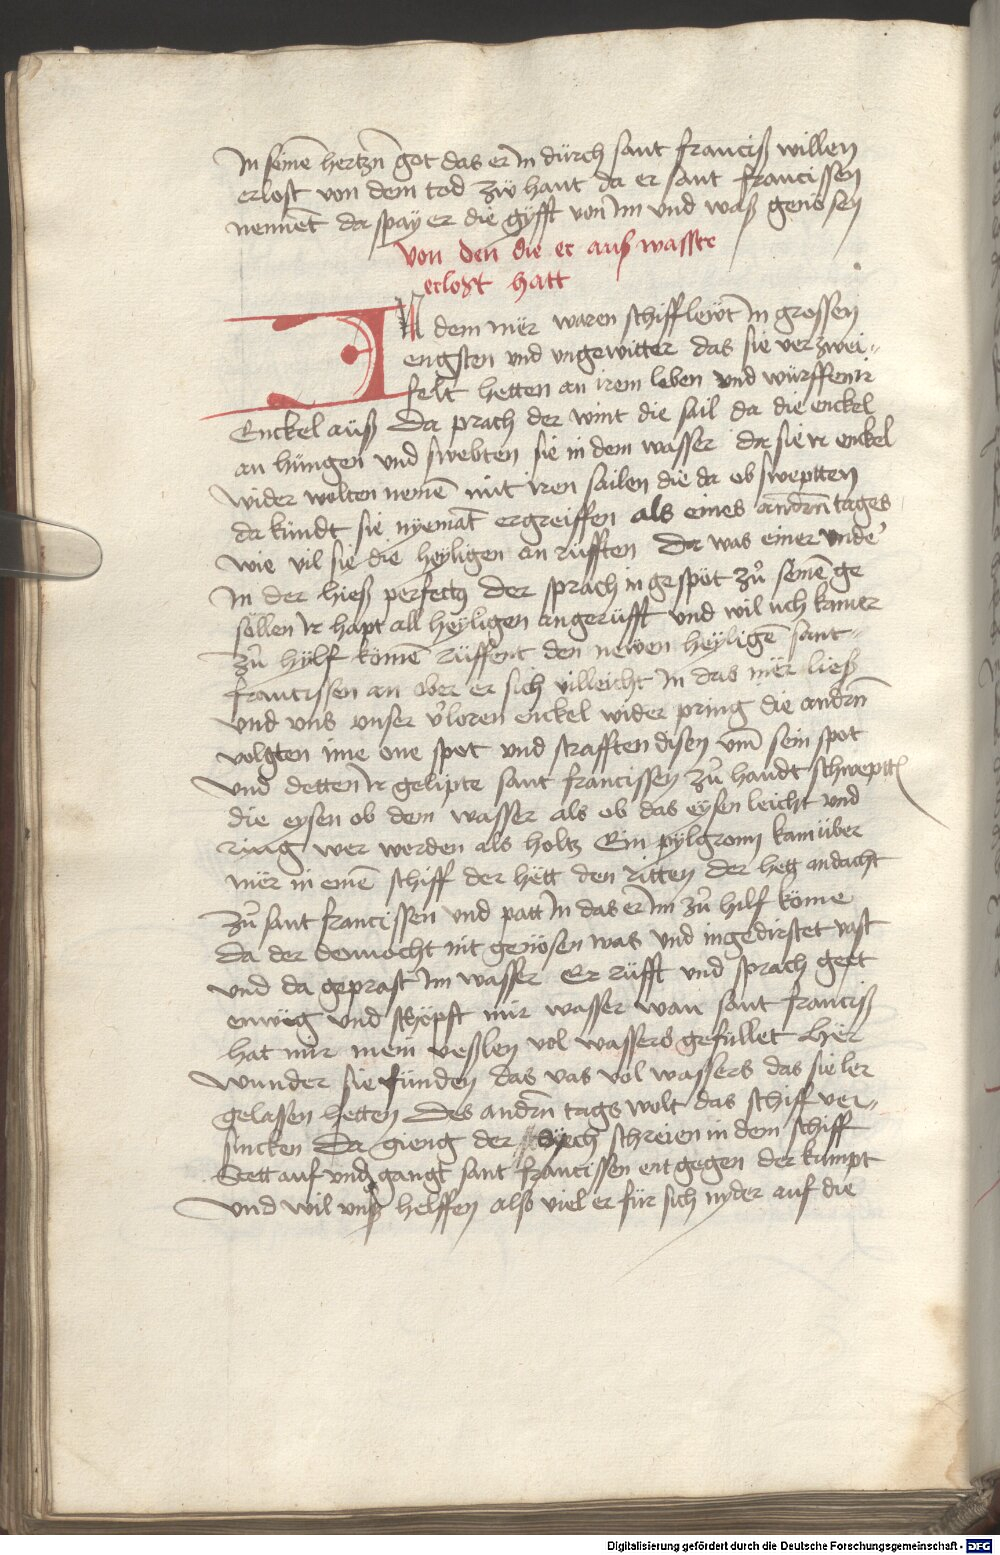 In seinē hertzn̄ got das er in durch sant franciß willen
erlost von dem tod zů hant da er sant francissen
nennet da spay er die gyfft von im vnd waß genösen
von den die er auß wasser
erlost hatt
IN dem mër waren schiffleẅt in grossen
engsten vnd vngewitter das sie verzwei-
felt hetten an irem leben vnd würffen ir
Enckel auß Da prach der wint die sail da die enckel
an hüngen vnd swebten sie in dem wasser da sie ir enkel
wider wolten nemē mit iren sailen die da ob swepten
da kundt sie nyemāt ergreiffen als eines andern̄ tages
wie vil sie die heyligen an rufften Da was einer vnder
in der hieß perfectus der sprach in gespöt zů seinē ge
söllen ir hapt all heyligen angerüfft vnd wil uch kainer
zů hylf komē rüffent den newen heyligē sant
francissen an ober er sich villeicht in das mër ließ
vnd vns vnser v̉loren enckel wider pring die andrn̄
volgten ime one spot vnd strafften disen vm̄ sein spot
vnd detten ir gelipte sant francissen zů handt schweptē
die eysen ob dem wasser als ob das eysen leicht vnd
ring wer worden als holtz Ein pylgrom kam über
mër in einē schiff der hëtt den ritten der hett andacht
zů sant francissen vnd patt in das er im zů hilf köme
Da der dennocht nit genösen was vnd in gedirstet vast
vnd da geprast im wasser Er rüfft vnd sprach geet
enweg vnd schöpft mir wasser wan sant franciß
hat mir mein veßlen vol wassers gefüllet Hër
wunder sie fünden das vas vol wassers das sie ler
gelassen hetten Des andrn̄ tags wolt das schiff ver-
sincken Da gieng der schreien in dem schiff
Stett auf vnd gangt sant francissen entgegen der kumpt
vnd wil vnß helffen also viel er für sich nyder auf die
Digitalisierung gefördert durch die Deutsche Forschungsgemeinschaft - DFG